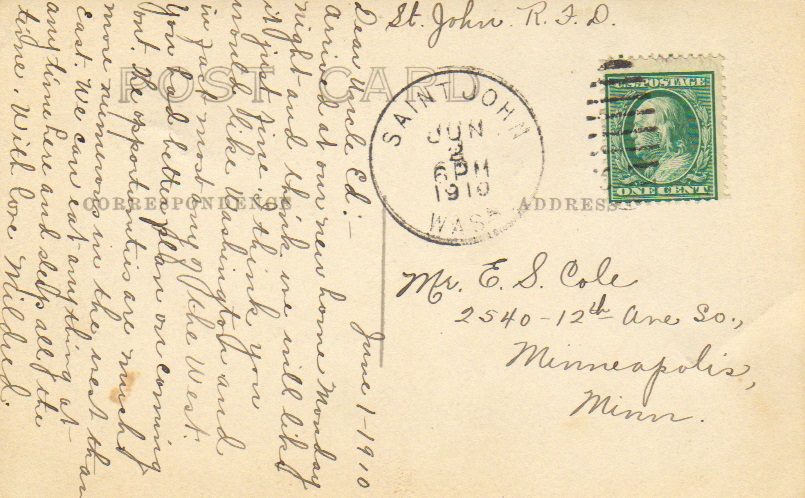 St. John. R. F. D.
POST CARD
U.S. POSTAGE
ONE CENT
SAINT JOHN
JUN
2
6 PM
1910
WASH
CORRESPONDENCE
ADDRESS
Mr. E. S. Cole
2540-12th Ave So.,
Minneapolis,
Minn.
June 1-1910
Dear Uncle Ed:-
Arrived at our new home Monday
night and think we will like
it just fine. I think you
would like Washington and
in fact most any of the West.
You had better plan on coming
out. The opportunities are much
more numerous in the west than
east. We can eat anything at
any time here and sleep all of the
time. With love Mildred.